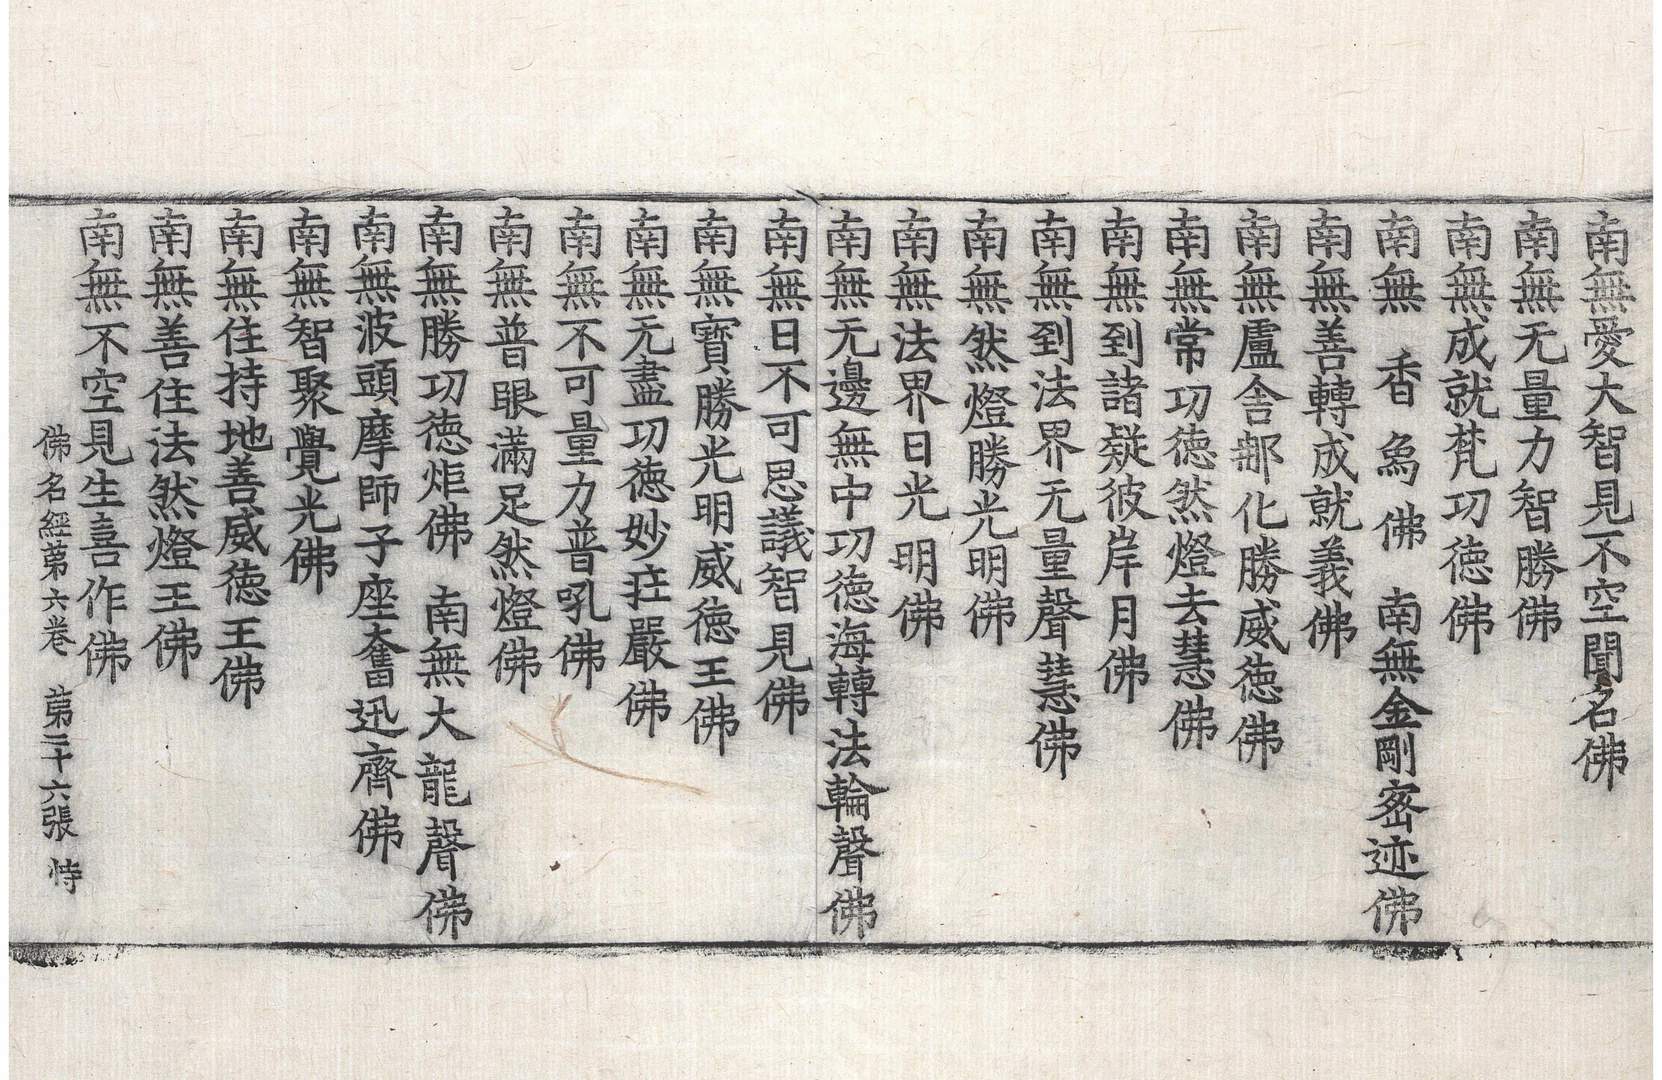 南無愛大智見不空聞名佛
南無无量力智勝佛
南無成就梵功德佛
南無香烏佛　南無金剛密迹佛
南無善轉成就義佛
南無盧舍那化勝威德佛
南無常功德然燈去慧佛
南無到諸疑彼岸月佛
南無到法界无量聲慧佛
南無然燈勝光明佛
南無法界日光明佛
南無无邊無中功德海轉法輪聲佛
南無日不可思議智見佛
南無寶勝光明威德王佛
南無无盡功德妙莊嚴佛
南無不可量力普吼佛
南無普眼滿足然燈佛
南無勝功德炬佛　南無大龍聲佛
南無波頭摩師子座奮迅齊佛
南無智聚覺光佛
南無住持地善威德王佛
南無善住法然燈王佛
南無不空見生喜作佛
佛名經第六卷　第二十六張　恃